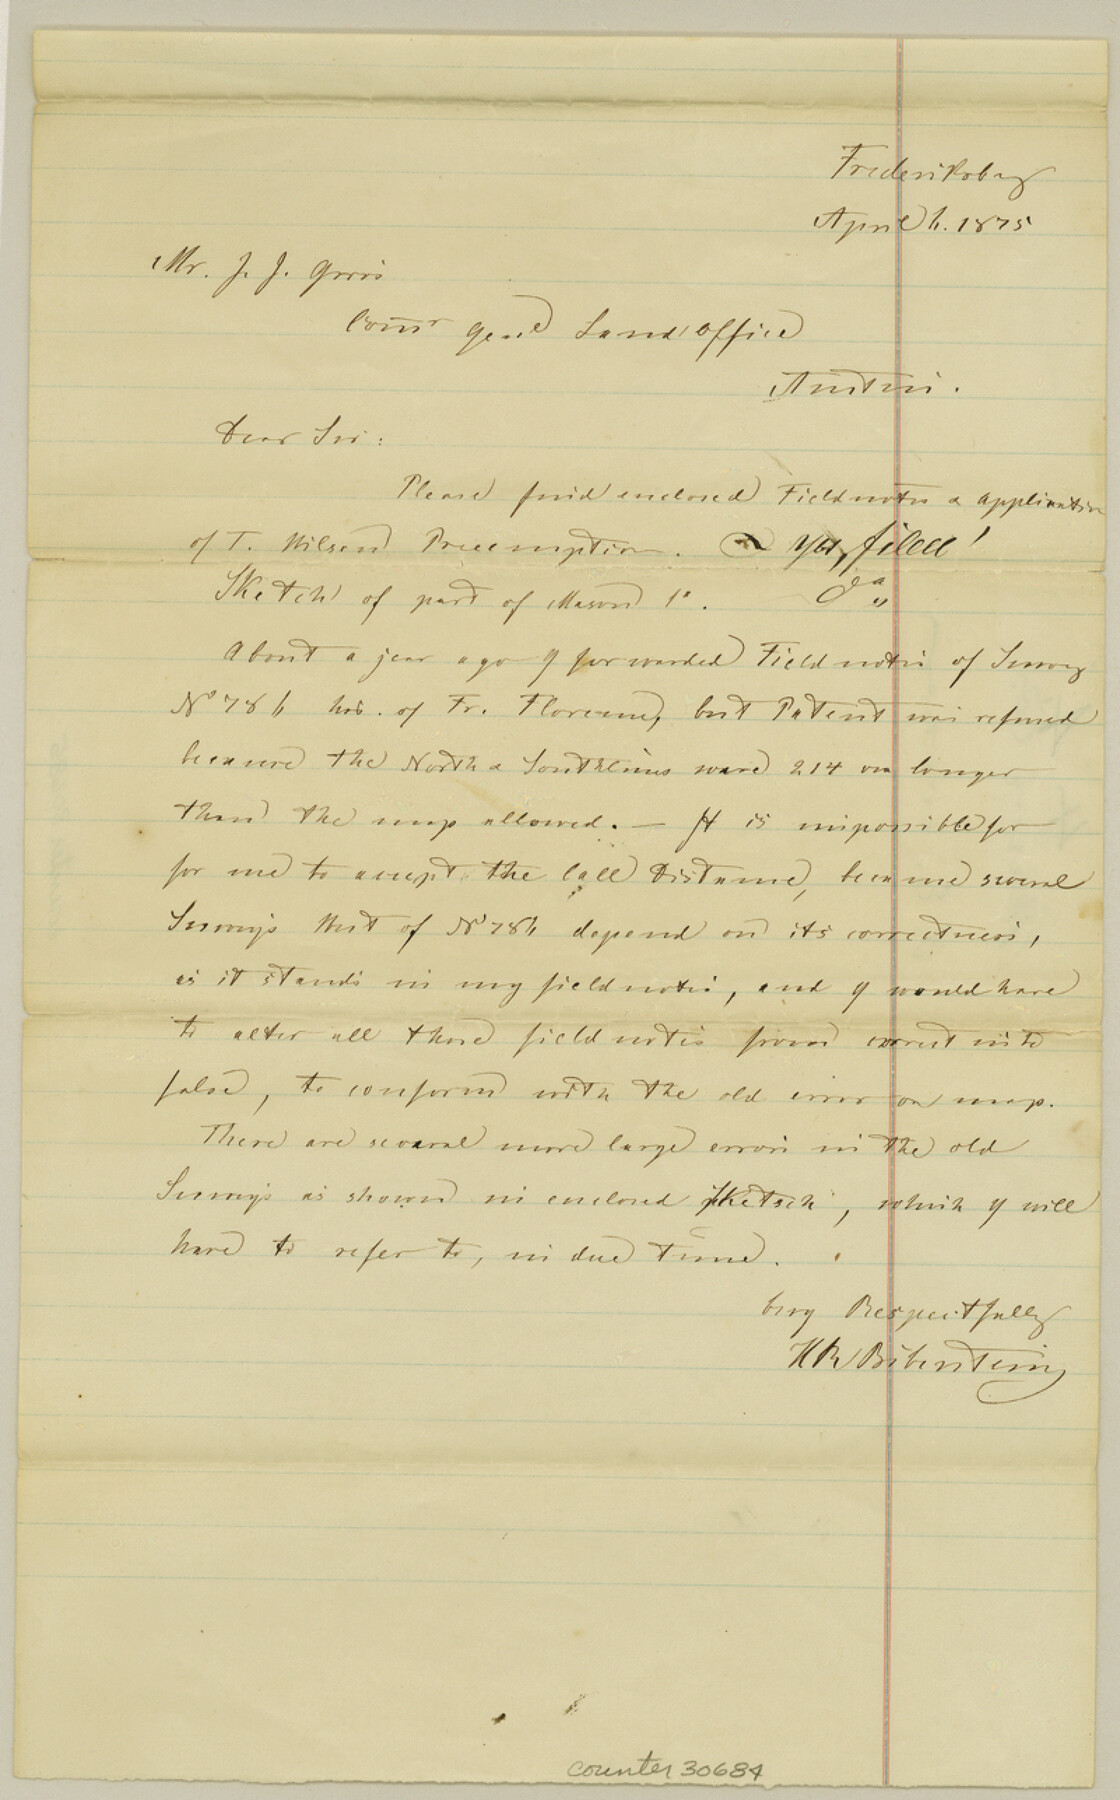 Frederiksburg
April 6. 1875
Mr. J. J. Gross
Comr Genl Land Office
Austin.
Dear Sir:
Please find enclosed Fieldnotes & Application
of T. Wilson Preemption. Yes, filed!
Sketch of part of Mason Co. Do "
About a jear ago I forwarded Fieldnotes of Survey
No 786 hob. of Fr. Floreane, but Patent was refused
because the North & Southlines ware 214 vrs longer
than the map allowed. — It is impossible for
for me to accept the Call Distance, because several
Surveys West of No 786 depend on its correctness,
as it stands in my fieldnotes, and I would have
to alter all those fieldnotes from correct into
false, to conform with the old error on map.
There are several more large errors in the old
Surveys as shown in enclosed sketsch, which I will
have to refer to, in due time.
Very Respectfully
HR Biberstein
counter 30684